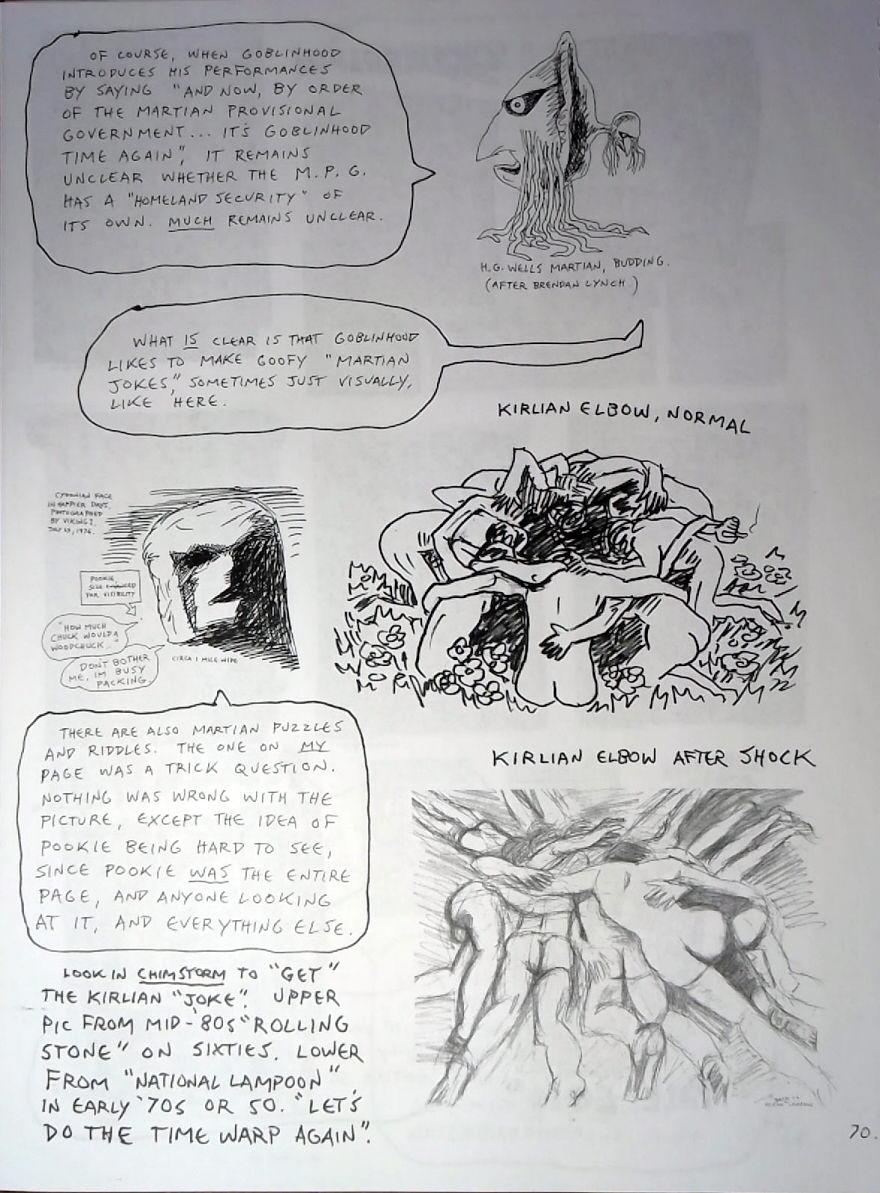 OF COURSE, WHEN GOBLINHOOD
INTRODUCES HIS PERFORMANCES
BY SAYING "AND NOW, BY ORDER
OF THE MARTIAN PROVISIONAL
GOVERNMENT... IT'S GOBLINHOOD
TIME AGAIN", IT REMAINS
UNCLEAR WHETHER THE M. P. G.
HAS A "HOMELAND SECURITY" OF
ITS OWN. MUCH REMAINS UNCLEAR.
H.G. WELLS MARTIAN, BUDDING.
(AFTER BRENDAN LYNCH.)
WHAT IS CLEAR IS THAT GOBLINHOOD
LIKES TO MAKE GOOFY "MARTIAN
JOKES," SOMETIMES JUST VISUALLY,
LIKE HERE.
KIRLIAN ELBOW, NORMAL
CYDONIAN FACE
IN HAPPIER DAYS,
PHOTOGRAPHED
BY VIKING 1,
JULY 25, 1976.
POOKIE,
FOR VISIBILITY
"HOW MUCH
CHUCK WOULD A
WOODCHUCK..."
DON'T BOTHER
ME. I'M BUSY
PACKING.
CIRCA 1 MILE WIDE
THERE ARE ALSO MARTIAN PUZZLES
AND RIDDLES. THE ONE ON MY
PAGE WAS A TRICK QUESTION.
NOTHING WAS WRONG WITH THE
PICTURE, EXCEPT THE IDEA OF
POOKIE BEING HARD TO SEE,
SINCE POOKIE WAS THE ENTIRE
PAGE, AND ANYONE LOOKING
AT IT, AND EVERYTHING ELSE.
KIRLIAN ELBOW AFTER SHOCK
LOOK IN CHIMSTORM TO "GET"
THE KIRLIAN "JOKE". UPPER
PIC FROM MID-'80S "ROLLING
STONE" ON SIXTIES. LOWER
FROM "NATIONAL LAMPOON",
IN EARLY '70S OR SO. "LET'S
DO THE TIME WARP AGAIN".
70.